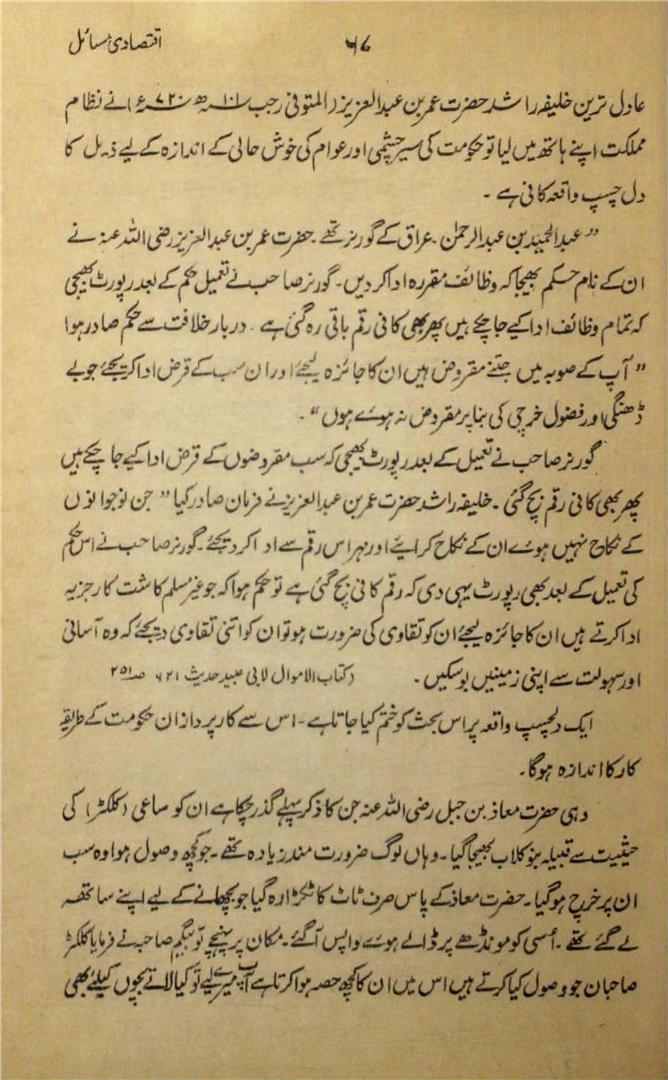 ۶۷ اقتصادی مسائل
عادل ترین خلیفہ راشد حضرت عمر بن عبدالعزیز (المتوفی رجب ۱۰۱ھ ۷۲۰ء) نے نظام
مملکت اپنے ہاتھ میں لیا تو حکومت کی سیر چشمی اور عوام کی خوش حالی کے اندازہ کے لیے ذیل کا
دل چسپ واقعہ کافی ہے ۔
” عبدالحمید بن عبدالرحمٰن ۔ عراق کے گورنر تھے ۔ حضرت عمر بن عبدالعزیز رضی اللہ عنہ نے
ان کے نام حکم بھیجا کہ وظائف مقررہ ادا کر دیں ۔ گورنر صاحب نے تعمیل حکم کے بعد رپورٹ بھیجی
کہ تمام وظائف ادا کیے جا چکے ہیں پھر بھی کافی رقم باقی رہ گئی ہے ۔ دربار خلافت سے حکم صادر ہوا
” آپ کے صوبہ میں جتنے مقروض ہیں ان کا جائزہ لیجئے اور ان سب کے قرض ادا کر دیجئے جو بے
ڈھنگی اور فضول خرچی کی بنا پر مقروض نہ ہوئے ہوں “ ۔
گورنر صاحب نے تعمیل کے بعد رپورٹ بھیجی کہ سب مقروضوں کے قرض ادا کیے جا چکے ہیں
پھر بھی کافی رقم بچ گئی ۔ خلیفہ راشد حضرت عمر بن عبدالعزیز نے فرمان صادر کیا ” جن نوجوانوں
کے نکاح نہیں ہوئے ان کے نکاح کرائیے اور مہر اس رقم سے ادا کر دیجئے ۔ گورنر صاحب نے اس حکم
کی تعمیل کے بعد بھی رپورٹ یہی دی کہ رقم کافی بچ گئی ہے تو حکم ہوا کہ جو غیر مسلم کاشت کار جزیہ
ادا کرتے ہیں ان کا جائزہ لیجئے ان کو تقاوی کی ضرورت ہو تو ان کو اتنی تقاوی دیجئے کہ وہ آسانی
اور سہولت سے اپنی زمینیں بو سکیں ۔ (کتاب الاموال لابی عبید حدیث ۶۲۱ صـ۲۵۱
ایک دلچسپ واقعہ پر اس بحث کو ختم کیا جاتا ہے ۔ اس سے کارپردازان حکومت کے طریقہ
کار کا اندازہ ہوگا ۔
وہی حضرت معاذ بن جبل رضی اللہ عنہ جن کا ذکر پہلے گذر چکا ہے ان کو ساعی (کلکٹر) کی
حیثیت سے قبیلہ بنو کلاب بھیجا گیا ۔ وہاں لوگ ضرورت مند زیادہ تھے ۔ جو کچھ وصول ہوا وہ سب
ان پر خرچ ہو گیا ۔ حضرت معاذ کے پاس صرف ٹاٹ کا ٹکڑا رہ گیا جو بچھانے کے لیے اپنے ساتھ
لے گئے تھے ۔ اُسی کو مونڈھے پر ڈالے ہوئے واپس آگئے ۔ مکان پر پہنچے تو بیگم صاحبہ نے فرمایا کلکٹر
صاحبان جو وصول کیا کرتے ہیں اس میں ان کا کچھ حصہ ہوا کرتا ہے آپ میرے لیے تو کیا لاتے بچوں کیلئے بھی